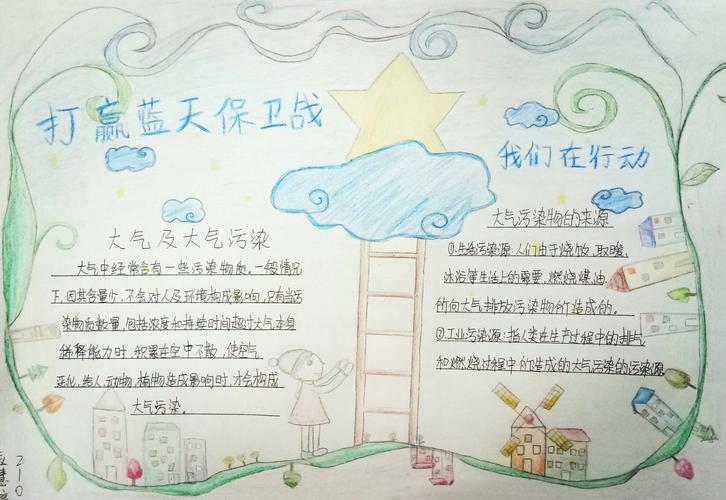 打赢蓝天保卫战
我们在行动
大气及大气污染
大气中经常含有一些污染物质。一般情况
下，因其含量少，不会对人及环境构成影响，只有当污
染物质数量，包括浓度和持续时间超过大气本身
稀释能力时，积累在空中不散，使空气
恶化，给人、动物、植物造成影响时，才会构成
大气污染。
大气污染物的来源
①.生活污染源：人们由于烧饭，取暖，
沐浴等生活上的需要，燃烧煤，油，
所向大气排放污染物所造成的。
②.工业污染源：指人类在生产过程中的排气
和燃烧过程中所造成的大气污染的污染源
210